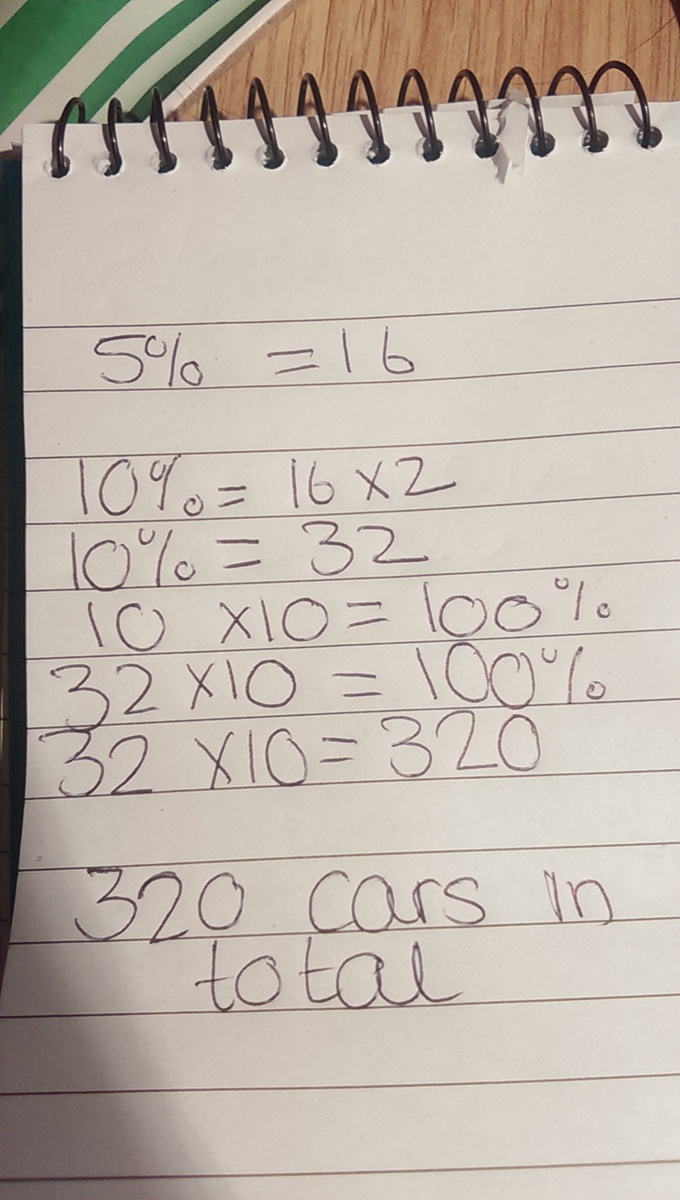 5% = 16
10% = 16 x 2
10% = 32
10 x10 = 100%
32 x10 = 100%
32 x10 = 320
320 cars in
total